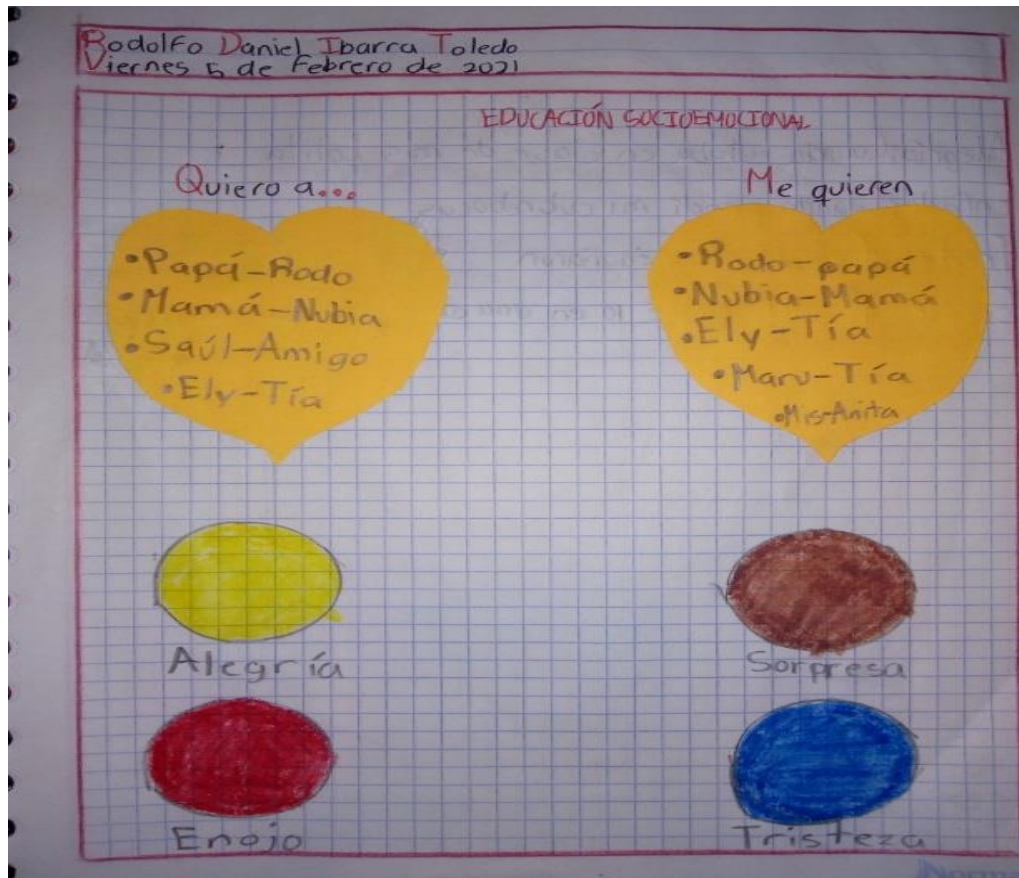 Rodolfo Daniel Ibarra Toledo
Viernes 5 de Febrero de 2021
EDUCACIÓN SOCIOEMOCIONAL
Quiero a...
•Papá-Rodo
•Mamá-Nubia
•Saúl-Amigo
•Ely-Tía
Me quieren
•Rodo-papá
•Nubia-Mamá
•Ely-Tía
•Maru-Tía
•Mis-Anita
Alegría
Sorpresa
Enojo
Tristeza
Norma